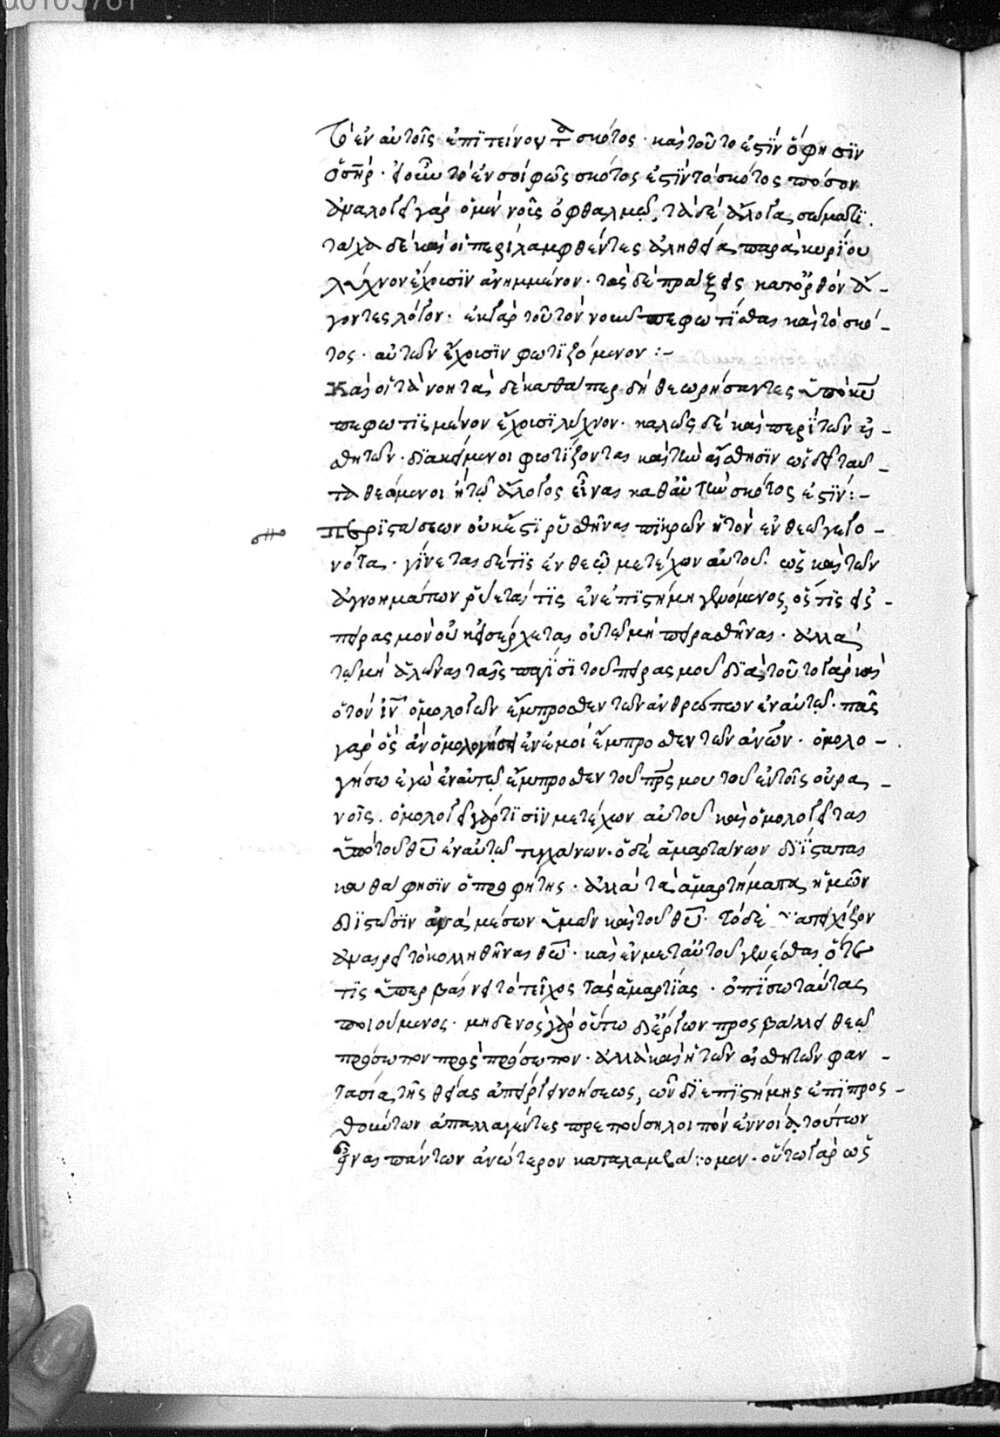 τὸ ἐν αὐτοῖς ἐπιτείνον τὸ σκότος· καὶ τοῦτο ἐστὶν ὅ φησὶν
ὁ σηρ· εἰ οὖν τὸ ἐν σοὶ φῶς σκότος ἐστὶν τὸ σκότος πόσον
γὰρ ὁ μὲν νοῦς ὀφθαλμῷ, τὰ δὲ ἄλογα σώματι.
τάχα δὲ καὶ οἱ περιλαμφθέντες ἀληθείας παρὰ κυρίου
λύχνον ἔχουσιν ἀνημμένον· τὰς δὲ πράξεις κατορθόν ἄ-
γοντες λόγον· ἐκ γὰρ τοῦ τὸν νοῦν πεφωτίσθαι καὶ τὸ σκό-
τος αὐτῶν ἔχουσιν φωτιζόμενον :-
Καὶ οἱ τὰ νοητὰ δὲ καθάπερ δὴ θεωρήσαντες ὑπὸ κυ
πεφωτισμένον ἔχουσι λύχνον· καλῶς δὲ καὶ περὶ τῶν αἰσ-
θητῶν· διακείμενοι φωτίζονται καὶ τὴν αἴσθησιν ὡς
θεάμενοι ἥτω ἄλογος εἶναι καθ' αὑτὴν σκότος ἐστίν :-
Περιστάσεων οὐκ ἔστι ῥυσθῆναι πικρῶν ἢ τὸν ἐν θεῷ γεγο-
νότα· γίνεται δέ τις ἐν θεῷ μετέχων αὐτοῦ· ὡς καὶ τῶν
ἀγνοημάτων ῥύεται τις ἐν ἐπιστήμη γενόμενος, ὅστις εἰς
πειρασμὸν οὐκ εἰσέρχεται οὐ τῷ μὴ πειρασθῆναι· ἀλλὰ
τῷ μὴ ἁλῶναι ταῖς παγίσι τοῦ πειρασμοῦ διὰ τοῦτο γὰρ καὶ
ὁ τὸν ιν ὁμολογῶν ἔμπροσθεν τῶν ἀνθρώπων ἐν αὐτῷ· πᾶς
γὰρ ὃς ἂν ὁμολογήσει ἐν ἐμοὶ ἔμπροσθεν τῶν ανων· ὁμολο-
γήσω ἐγὼ ἐν αὐτῷ ἔμπροσθεν τοῦ πρς μου τοῦ ἐν τοῖς οὐρα-
νοῖς· ὁμολογεῖ γάρ τισὶν μετέχων αὐτοῦ καὶ ὁμολογεῖται
ὑπὸ τοῦ θυ ἐν αὐτῷ τυγχάνων· ὁ δὲ ἁμαρτάνων διίσταται
καθά φησὶν ὁ προφήτης· ἀλλὰ τὰ ἁμαρτήματα ἡμῶν
διϊστῶσιν ἀνὰ μέσων ὑμῶν καὶ τοῦ θυ· τὸ δὲ ἀποτειχίζον
ἀναιρεῖ τὸ κολληθῆναι θεῷ· καὶ ἐν μετ' αὐτοῦ γενέσθαι ὅτε
τις ὑπερβαίνει τὸ τεῖχος τὰς ἁμαρτίας· ὀπίσω ταύτας
ποιούμενος· μηδενὸς γὰρ οὕτω διείργων προσβάλλει θεῷ
πρόσωπον πρὸς πρόσωπον· ἀλλὰ καὶ ἡ τῶν αἰσθητῶν φαν-
τασία τῆς θείας ἀπείργει νοήσεως, ὧν δι' ἐπιστήμης ἐπιπροσ-
θούντων ἀπαλλαγέντες
εἶναι πάντων ἀνώτερον καταλαμβάνομεν· οὕτω γὰρ ὡς